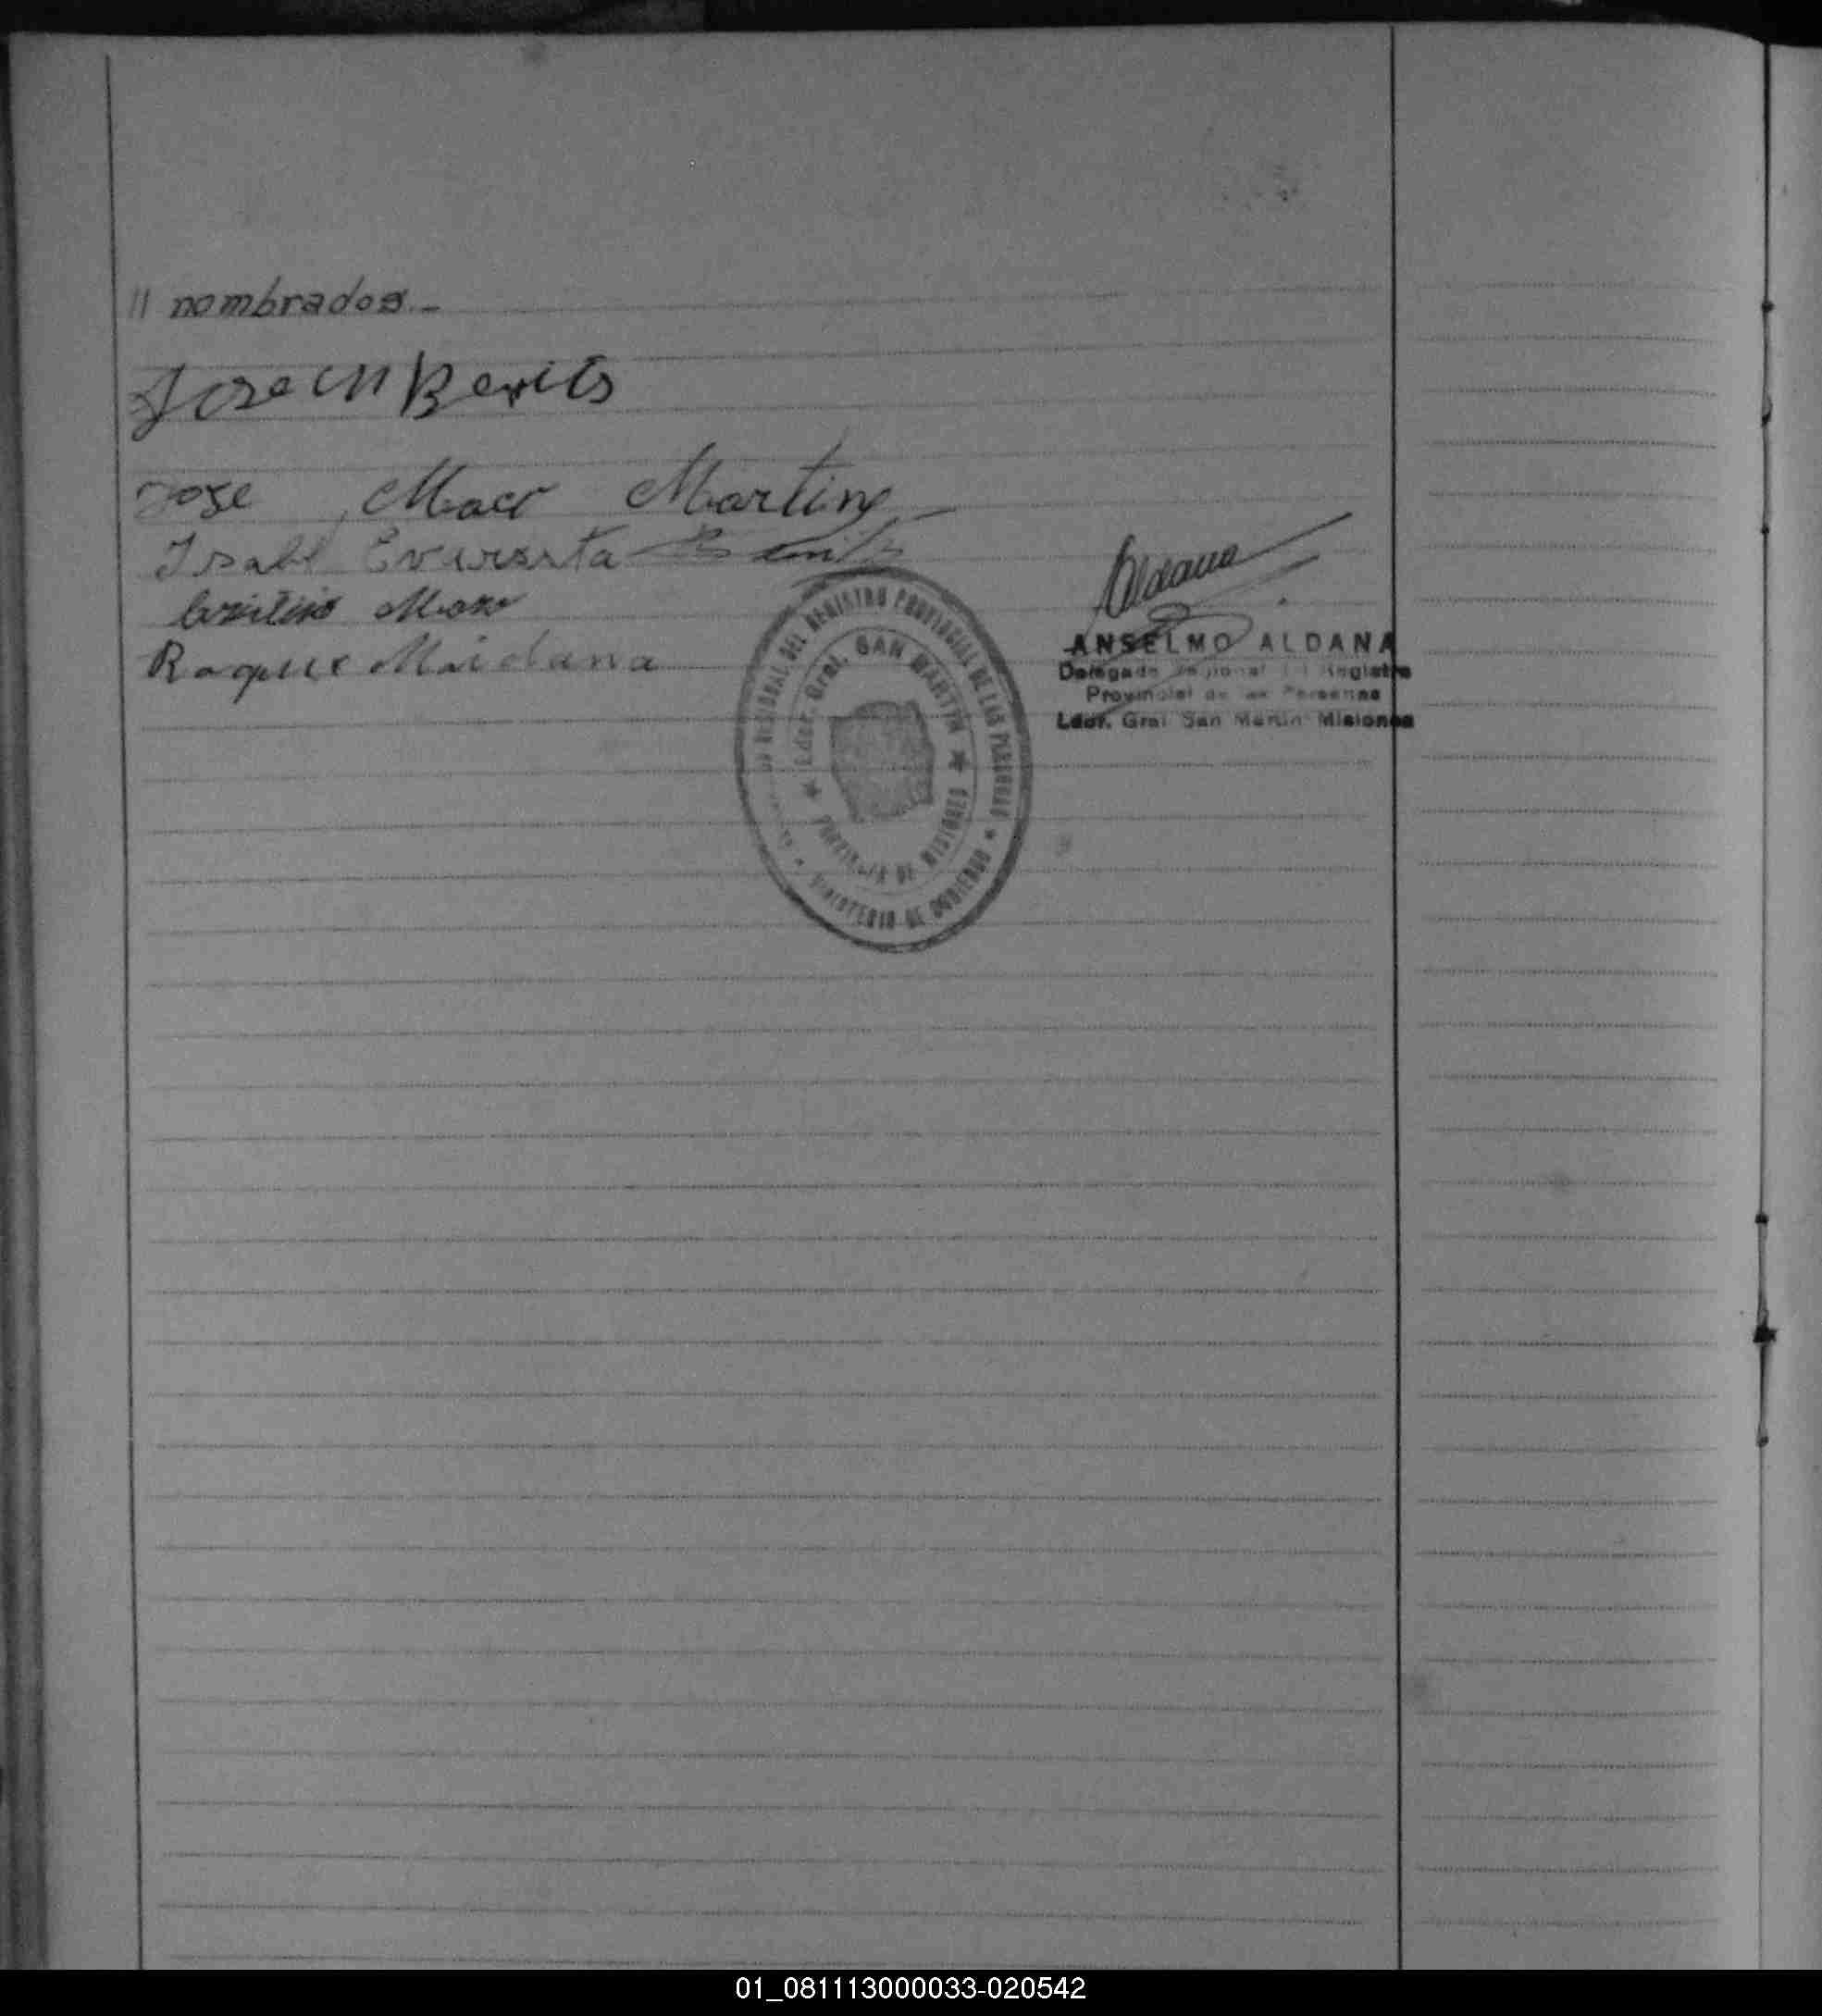 // nombrados.-
Jose M Benits
Jose Mact Marting
Isabl Evarista Benitz
Maro
Raque Maidana
Aldana
ANSELMO ALDANA
Delegado Regional del Registro
Provincial de las Personas
Ldor. Gral San Martin Misiones
REGIONAL DEL REGISTRO PROVINCIAL DE LAS PERSONAS
★ Ldor. Gral. SAN MARTIN ★
PROVINCIA DE MISIONES
MINISTERIO DE GOBIERNO
01_081113000033-020542